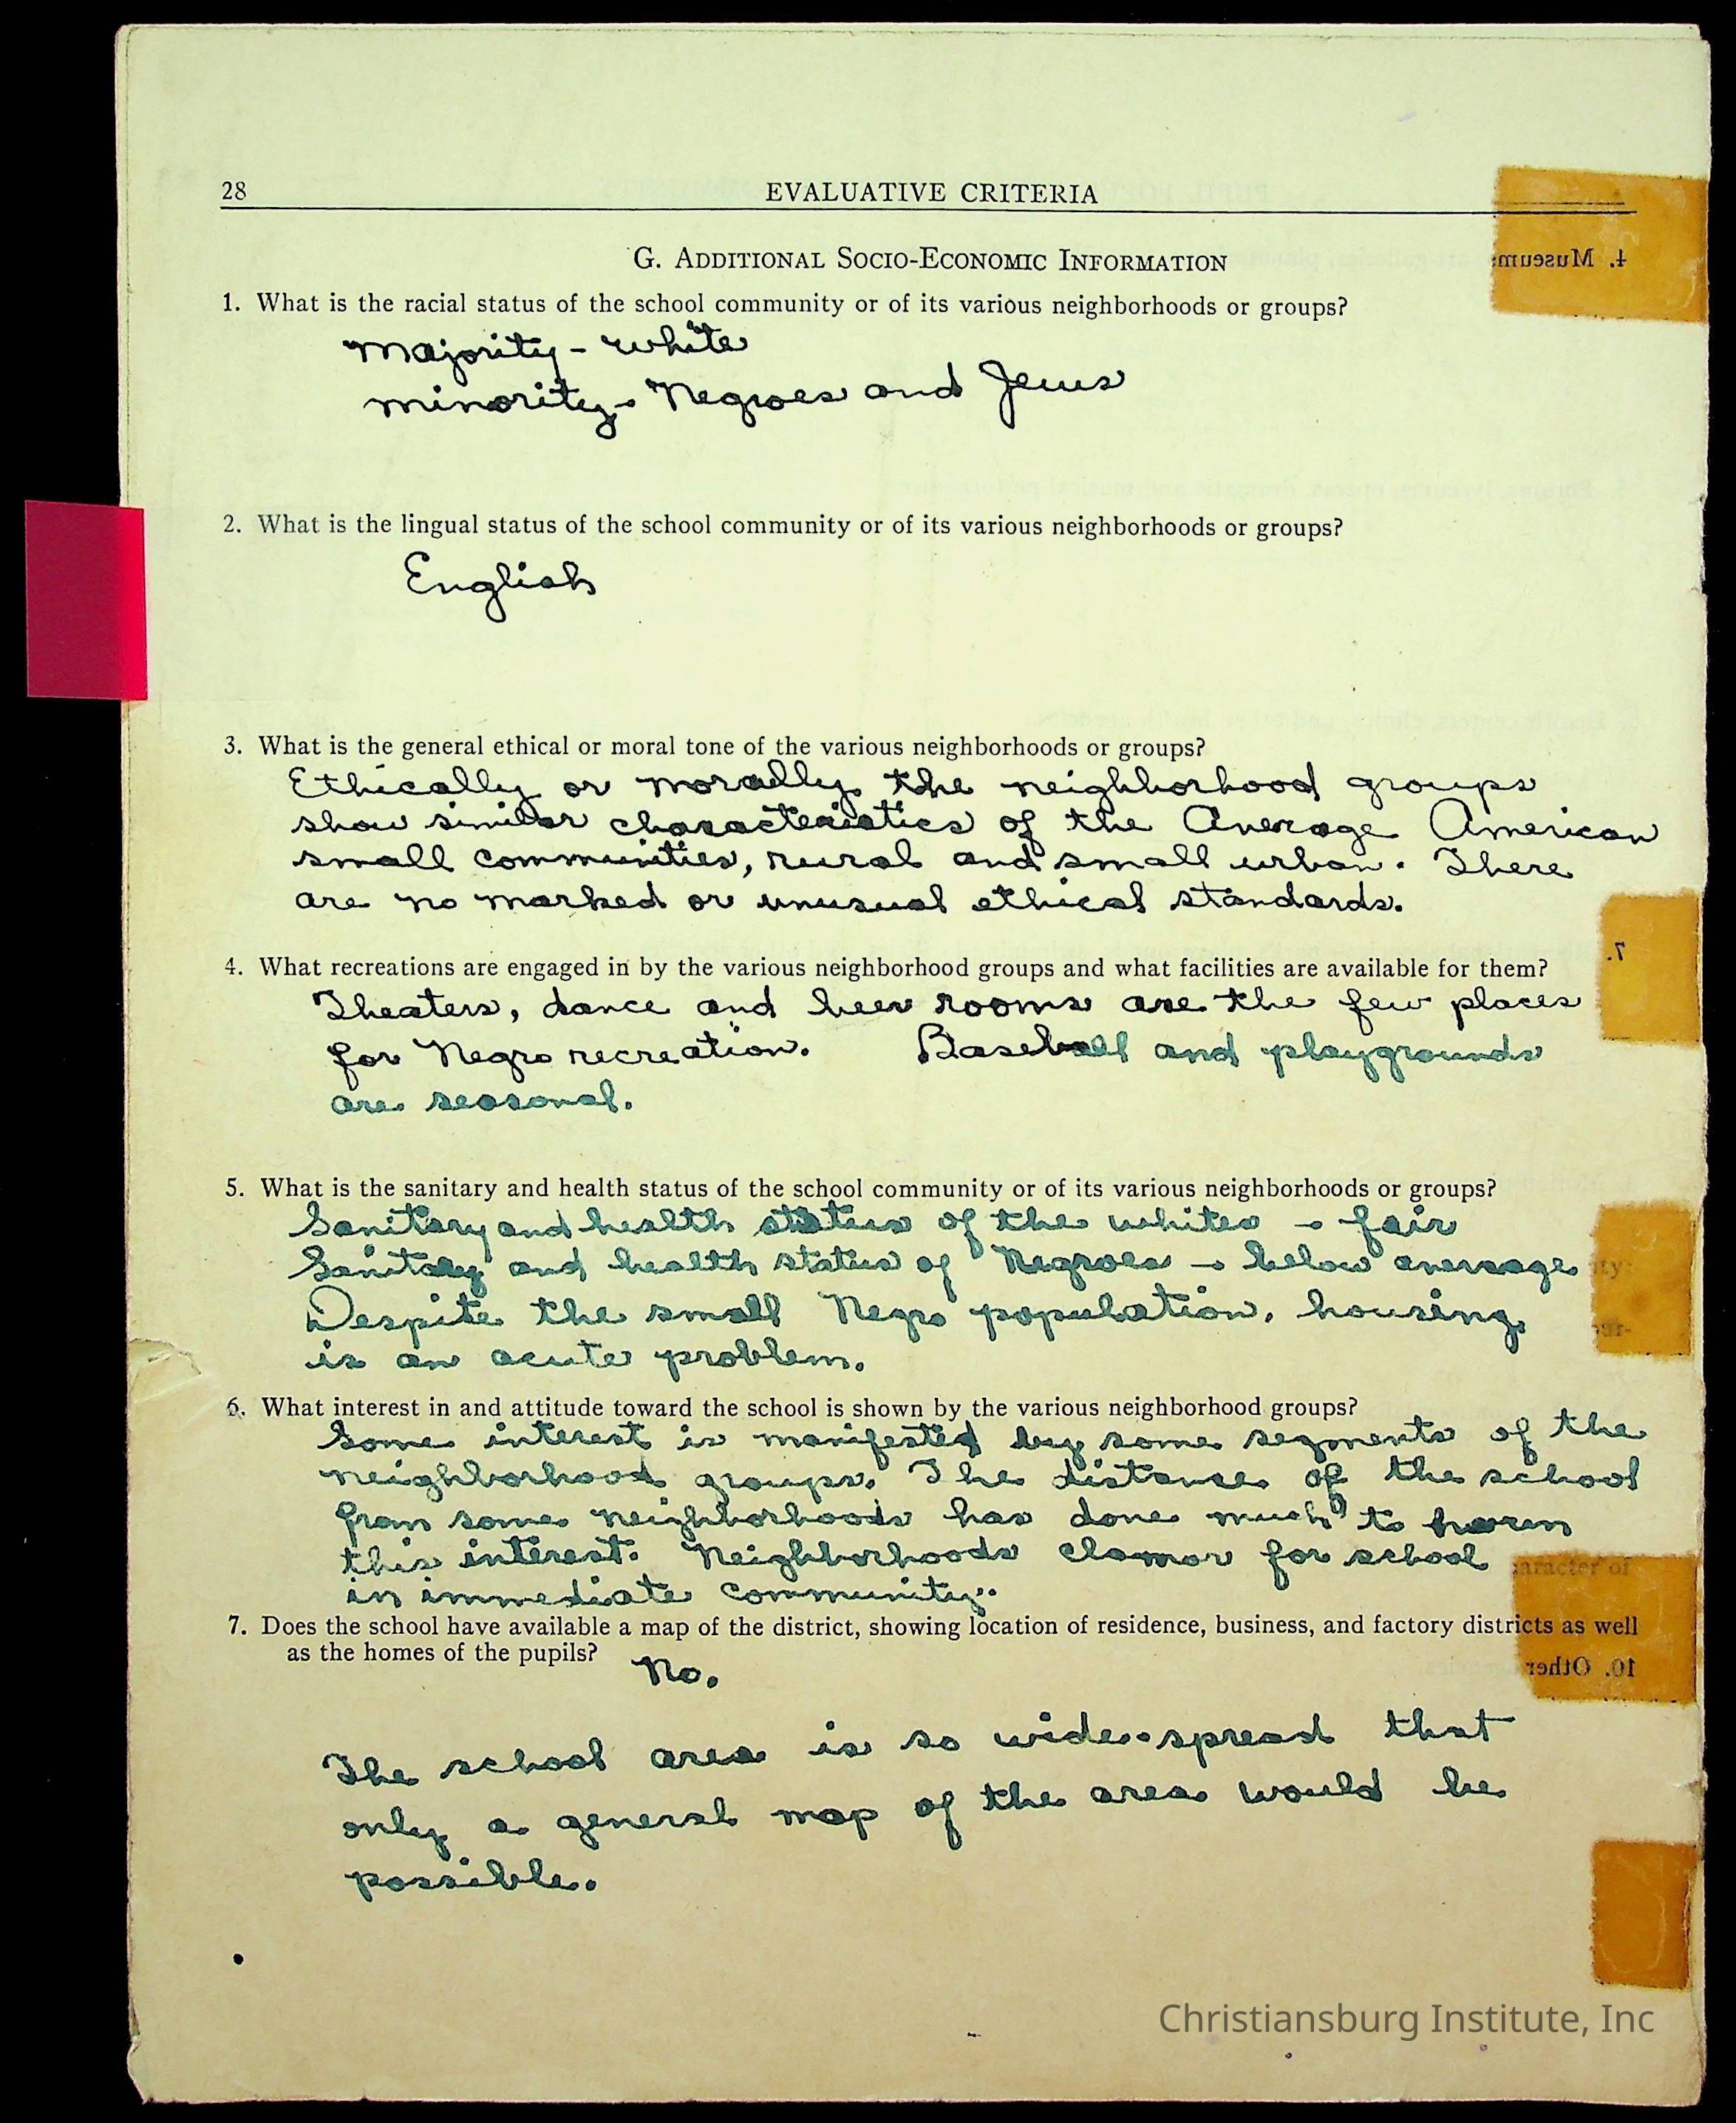 28
EVALUATIVE CRITERIA
4. Museum
G. ADDITIONAL SOCIO-ECONOMIC INFORMATION
1. What is the racial status of the school community or of its various neighborhoods or groups?
Majority - white
minority - Negroes and Jews
2. What is the lingual status of the school community or of its various neighborhoods or groups?
English
3. What is the general ethical or moral tone of the various neighborhoods or groups?
Ethically or morally the neighborhood groups
show similar characteristics of the Average American
small communities, rural and small urban. There
are no marked or unusual ethical standards.
7.
4. What recreations are engaged in by the various neighborhood groups and what facilities are available for them?
Theaters, dance and beer rooms are the few places
for Negro recreation. Baseball and playgrounds
are seasonal.
5. What is the sanitary and health status of the school community or of its various neighborhoods or groups?
Sanitary and health status of the whites - fair
Sanitary and health status of Negroes - below average
Despite the small Negro population, housing
is an acute problem.
6. What interest in and attitude toward the school is shown by the various neighborhood groups?
Some interest is manifested by some segments of the
neighborhood groups. The distance of the school
from some neighborhoods has done much to harm
this interest. Neighborhoods clamor for school
in immediate community.
7. Does the school have available a map of the district, showing location of residence, business, and factory districts as well
as the homes of the pupils?
No.
10. Other
The school area is so wide-spread that
only a general map of the area would be
possible.
Christiansburg Institute, Inc